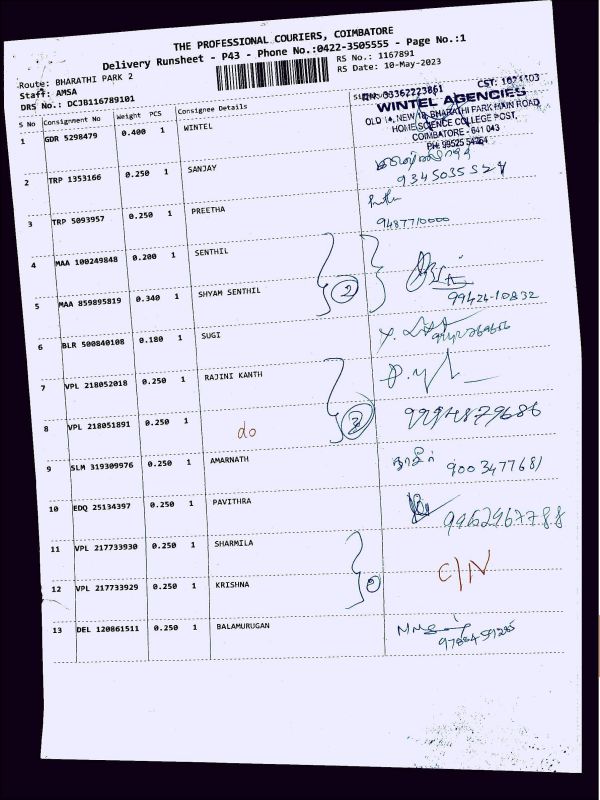 THE PROFESSIONAL COURIERS, COIMBATORE
Delivery Runsheet - P43 - Phone No.:0422-3505555 - Page No.:1
Route: BHARATHI PARK 2
RS No.: 1167891
Staff: AMSA
RS Date: 10-May-2023
DRS No.: DCJB116789101
S No Consignment No Weight PCS Consignee Details
1 GDR 5298479 0.400 1 WINTEL
CST: 1071103
WINTEL AGENCIES
OLD 14, NEW 18, BHARATHI PARK MAIN ROAD
HOME SCIENCE COLLEGE POST,
COIMBATORE - 641 043
2 TRP 1353166 0.250 1 SANJAY
3 TRP 5093957 0.250 1 PREETHA 9487710000
4 MAA 100249848 0.200 1 SENTHIL
2
5 MAA 859895819 0.340 1 SHYAM SENTHIL 99424-10832
6 BLR 500840108 0.180 1 SUGI
7 VPL 218052018 0.250 1 RAJINI KANTH
8 VPL 218051891 0.250 1 do
9 SLM 319309976 0.250 1 AMARNATH 9003477681
10 EDQ 25134397 0.250 1 PAVITHRA 9952967788
11 VPL 217733930 0.250 1 SHARMILA
C/N
12 VPL 217733929 0.250 1 KRISHNA
13 DEL 120861511 0.250 1 BALAMURUGAN